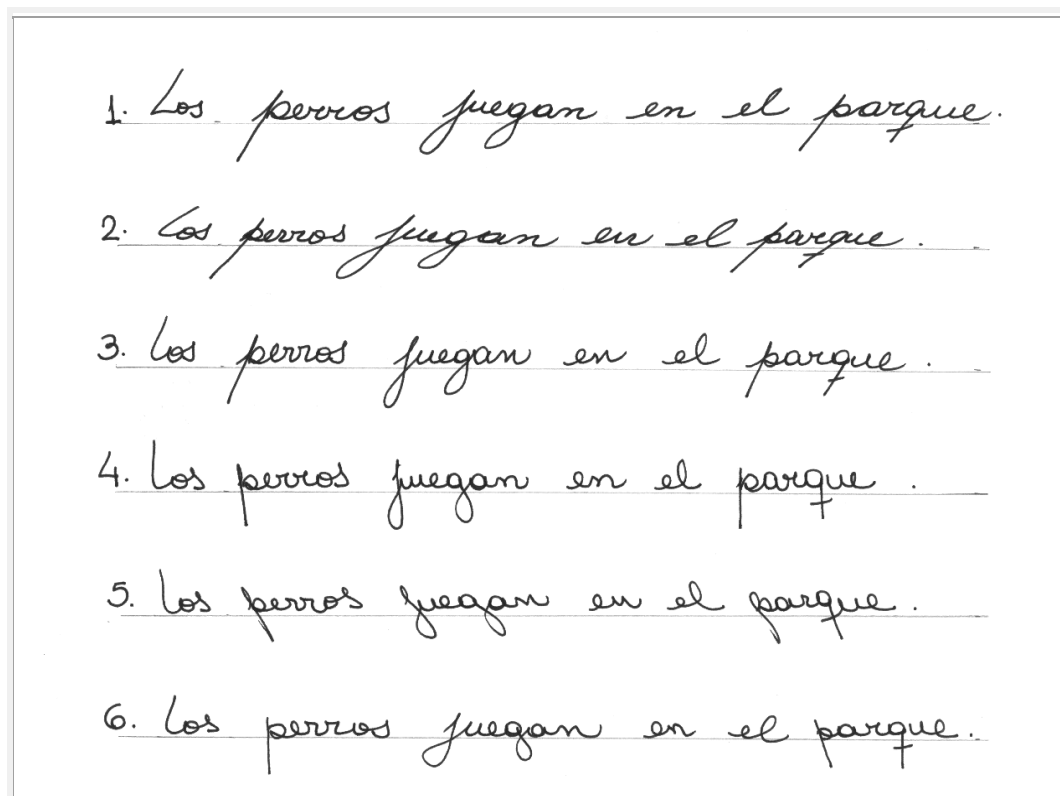 1. Los perros juegan en el parque.
2. Los perros juegan en el parque.
3. Los perros juegan en el parque.
4. Los perros juegan en el parque.
5. Los perros juegan en el parque.
6. Los perros juegan en el parque.